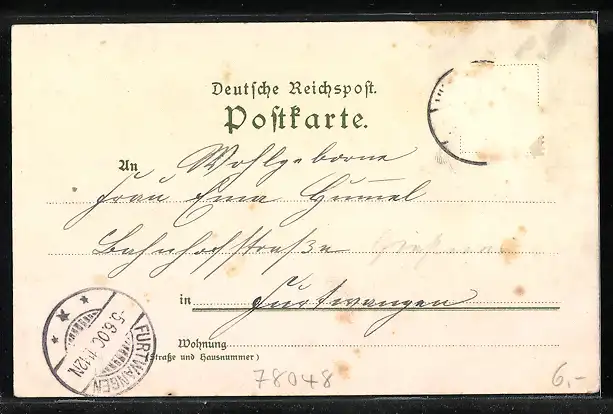 Deutsche Reichspost.
Postkarte.
An Wohlgeborne
Frau Ema Hummel
Bahnhofstraße
in Furtwangen
Wohnung
(Straße und Hausnummer)
FURTWANGEN
5.6.00. 11-12N
78048
6,-